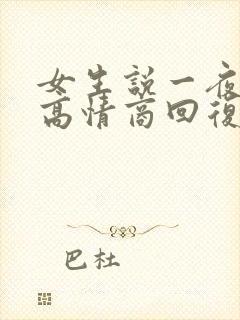 女生說一夜
高情商回復
巴杜